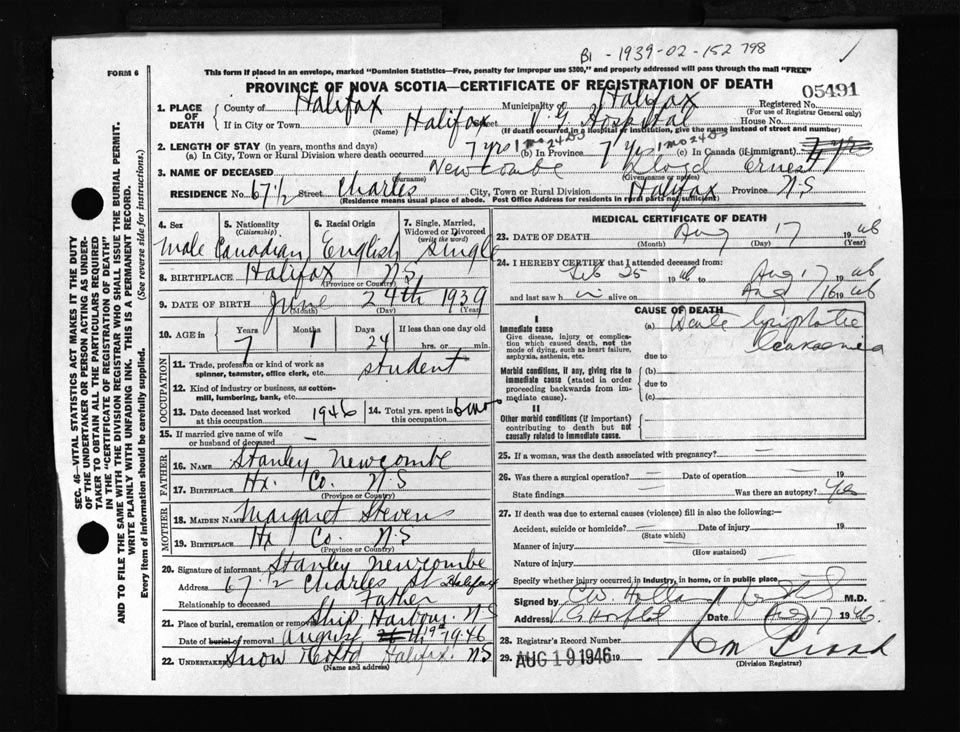 B1 - 1939-02-152798
FORM 6
This form if placed in an envelope, marked "Dominion Statistics—Free, penalty for improper use $300," and properly addressed will pass through the mail "FREE"
PROVINCE OF NOVA SCOTIA—CERTIFICATE OF REGISTRATION OF DEATH
05491
1. PLACE OF DEATH
County of Halifax Municipality of Halifax Registered No.
(For use of Registrar General only)
If in City or Town Halifax Street V G Hospital House No.
(Name) (If death occurred in a hospital or institution, give the name instead of street and number)
2. LENGTH OF STAY (in years, months and days)
(a) In City, Town or Rural Division where death occurred 7 yrs 1 mo 24 ds (b) In Province 7 yrs 1 mo 24 ds (c) In Canada (if immigrant)
3. NAME OF DECEASED Newcombe Lloyd Ernest
(Surname) (Given name or names)
RESIDENCE No. 67 1/2 Street Charles City, Town or Rural Division Halifax Province N.S
(Residence means usual place of abode. Post Office Address for residents in rural parts not sufficient)
4. Sex
Male
5. Nationality (Citizenship)
Canadian
6. Racial Origin
English
7. Single, Married, Widowed or Divorced (write the word)
Single
8. BIRTHPLACE Halifax N.S.
(Province or Country)
9. DATE OF BIRTH June 24th 1939
(Month) (Day) (Year)
10. AGE in Years Months Days If less than one day old
7 1 24 hrs. or min.
OCCUPATION
11. Trade, profession or kind of work as spinner, teamster, office clerk, etc. student
12. Kind of industry or business, as cotton-mill, lumbering, bank, etc.
13. Date deceased last worked at this occupation 1946
14. Total yrs. spent in this occupation 6 mos
15. If married give name of wife or husband of deceased —
FATHER
16. NAME Stanley Newcombe
17. BIRTHPLACE Hx. Co. N.S
(Province or Country)
MOTHER
18. MAIDEN NAME Margaret Stevens
19. BIRTHPLACE Hx Co. N.S
(Province or Country)
20. Signature of informant Stanley Newcombe
Address 67 1/2 Charles St Halifax
Relationship to deceased Father
21. Place of burial, cremation or removal Ship Harbour N S
Date of burial or removal August 19th 1946
22. Undertaker Snow & Co Ltd Halifax. N S
(Name and address)
MEDICAL CERTIFICATE OF DEATH
23. DATE OF DEATH Aug 17 1946
(Month) (Day) (Year)
24. I HEREBY CERTIFY that I attended deceased from:
Feb 25 1946 to Aug 17 1946
and last saw him alive on Aug 16 1946
CAUSE OF DEATH
I
Immediate cause
Give disease, injury or complication which caused death, not the mode of dying, such as heart failure, asphyxia, asthenia, etc.
(a) Acute Lymphatic Leukaemia
due to
Morbid conditions, if any, giving rise to immediate cause (stated in order proceeding backwards from immediate cause).
(b)
due to
(c)
II
Other morbid conditions (if important) contributing to death but not causally related to immediate cause.
25. If a woman, was the death associated with pregnancy? —
26. Was there a surgical operation? — Date of operation — 19
State findings — Was there an autopsy? Yes
27. If death was due to external causes (violence) fill in also the following:—
Accident, suicide or homicide? — Date of injury — 19
(State which)
Manner of injury
(How sustained)
Nature of injury
Specify whether injury occurred in industry, in home, or in public place
Signed by C W Holland M.D.
Address V. G Hospital Date Aug 17 1946
28. Registrar's Record Number
29. AUG 19 1946 19
(Division Registrar)
SEC. 46—VITAL STATISTICS ACT MAKES IT THE DUTY
OF THE UNDERTAKER OR PERSON ACTING AS UNDER-
TAKER TO OBTAIN ALL THE PARTICULARS REQUIRED
IN THE "CERTIFICATE OF REGISTRATION OF DEATH"
AND TO FILE THE SAME WITH THE DIVISION REGISTRAR WHO SHALL ISSUE THE BURIAL PERMIT.
WRITE PLAINLY WITH UNFADING INK. THIS IS A PERMANENT RECORD.
Every item of information should be carefully supplied. (See reverse side for instructions).